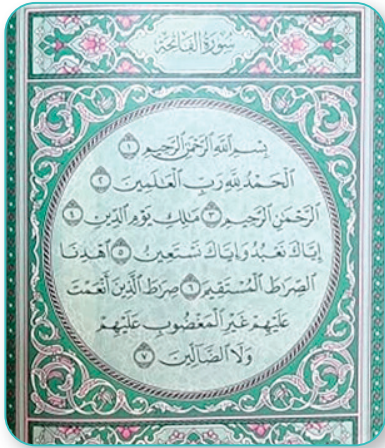 سُورَةُ الفَاتِحَةِ
بِسْمِ ٱللَّهِ ٱلرَّحْمَٰنِ ٱلرَّحِيمِ ١
ٱلْحَمْدُ لِلَّهِ رَبِّ ٱلْعَٰلَمِينَ ٢
ٱلرَّحْمَٰنِ ٱلرَّحِيمِ ٣ مَٰلِكِ يَوْمِ ٱلدِّينِ ٤
إِيَّاكَ نَعْبُدُ وَإِيَّاكَ نَسْتَعِينُ ٥ ٱهْدِنَا
ٱلصِّرَٰطَ ٱلْمُسْتَقِيمَ ٦ صِرَٰطَ ٱلَّذِينَ أَنْعَمْتَ
عَلَيْهِمْ غَيْرِ ٱلْمَغْضُوبِ عَلَيْهِمْ
وَلَا ٱلضَّآلِّينَ ٧